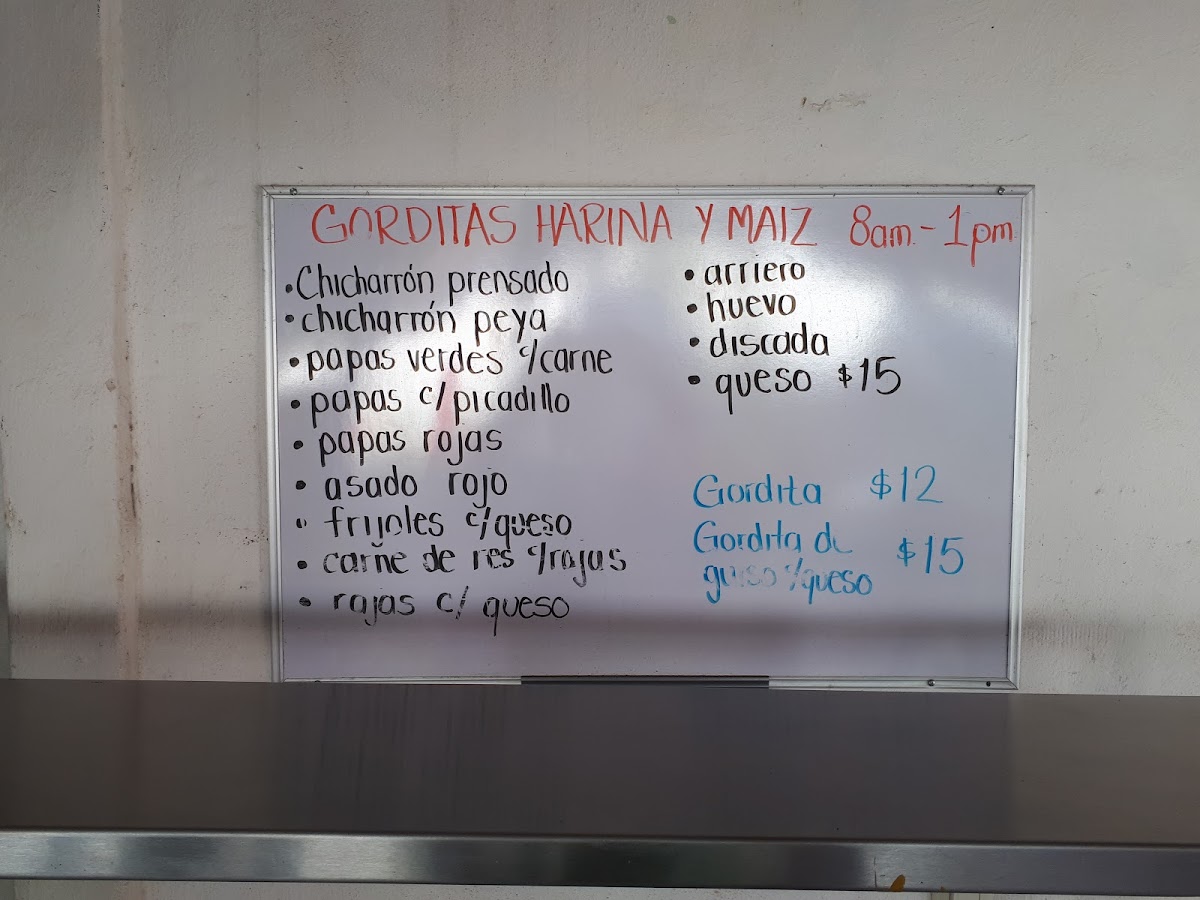 GORDITAS HARINA Y MAIZ 8am - 1pm
• Chicharrón prensado
• chicharrón peya
• papas verdes c/carne
• papas c/picadillo
• papas rojas
• asado rojo
• frijoles c/queso
• carne de res c/rajas
• rajas c/ queso
• arriero
• huevo
• discada
• queso $15
Gordita $12
Gordita de $15
guiso c/queso